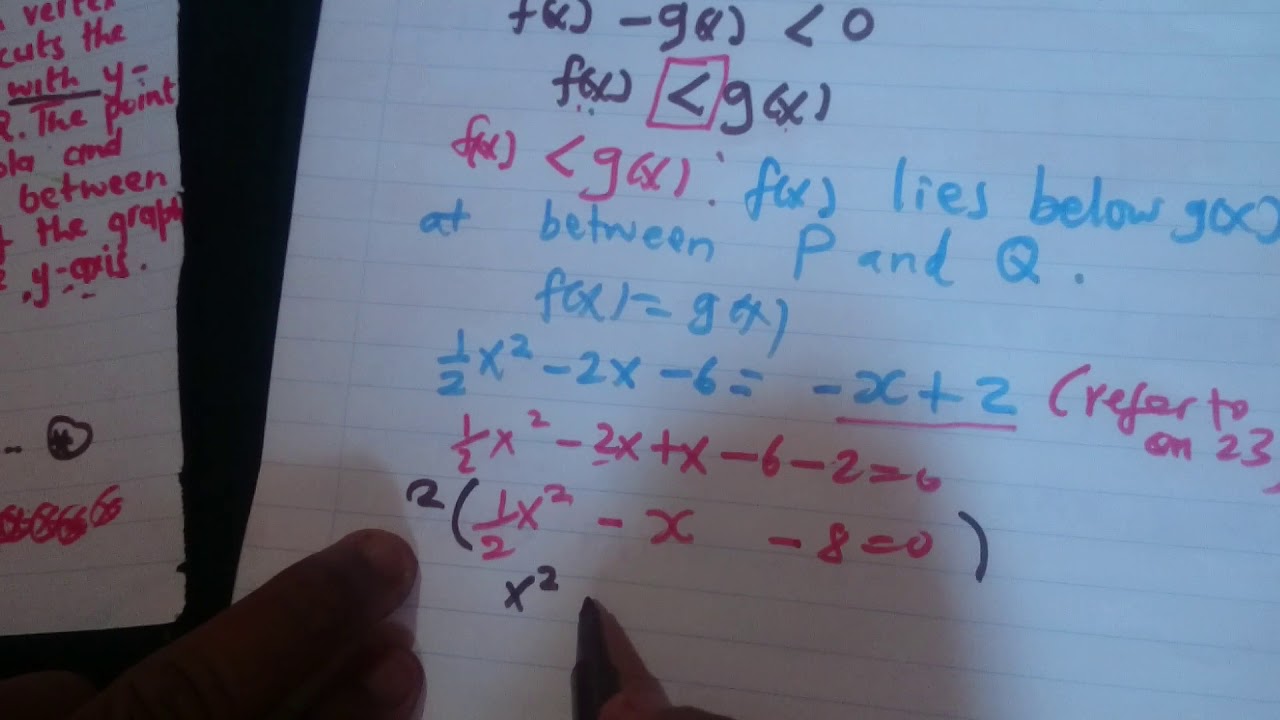 vertex
cuts the
with y-
. The point
and
between
the graph
y-axis.
f(x) - g(x) < 0
f(x) < g(x)
f(x) < g(x): f(x) lies below g(x)
at between P and Q.
f(x) = g(x)
1/2 x² - 2x - 6 = -x + 2 (refer to
on 23)
1/2 x² - 2x + x - 6 - 2 = 0
2 (1/2 x² - x - 8 = 0)
x²